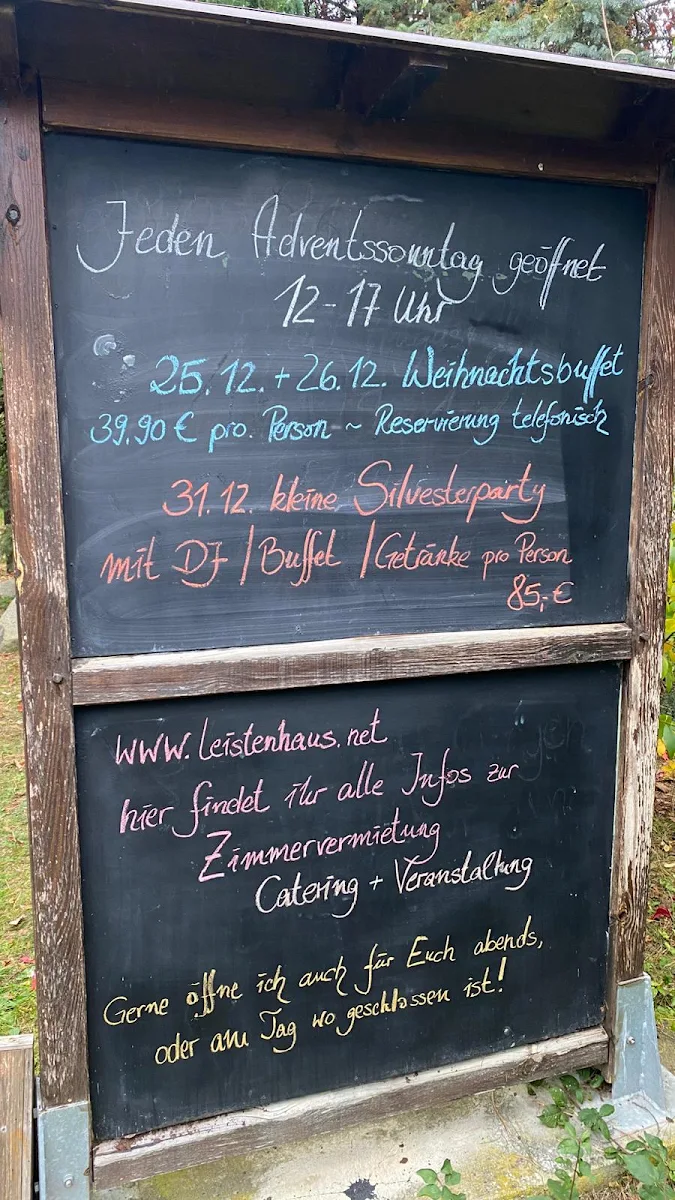 Jeden Adventssonntag geöffnet
12-17 Uhr
25.12. + 26.12. Weihnachtsbuffet
39.90 € pro. Person ~ Reservierung telefonisch
31.12. kleine Silvesterparty
mit DJ / Buffet / Getränke pro Person
85,-€
www.leistenhaus.net
hier findet ihr alle Infos zur
Zimmervermietung
Catering + Veranstaltung
Gerne öffne ich auch für Euch abends,
oder am Tag wo geschlossen ist!